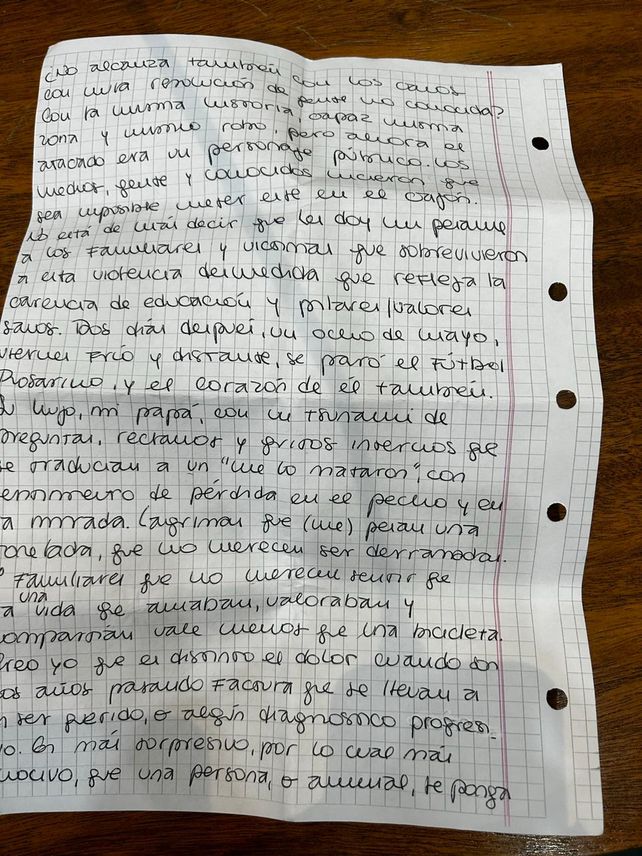 ¿No alcanza también con los casos
con una resolución de gente no conocida?
Con la misma historia, capaz misma
zona y mismo robo, pero ahora el
atacado era un personaje público. Los
medios, gente y conocidos hicieron que
sea imposible meter este en el cajón.
No está de mas decir que les doy un pésame
a los familiares y victimas que sobrevivieron
a esta violencia desmedida que refleja la
carencia de educación y pilares/valores
sanos. Dos días después, un ocho de mayo,
viernes frío y distante, se paró el Fútbol
Rosarino, y el corazón de el también.
Su hijo, mi papá, con un tsunami de
preguntas, reclamos y gritos internos que
se traducían a un "me lo mataron", con
de pérdida en el pecho y en
la mirada. Lágrimas que (me) pesan una
tonelada, que no merecen ser derramadas.
Familiares que no merecen sentir que
una
la vida que amaban, valoraban y
compartían vale menos que una bicicleta.
Creo yo que es distinto el dolor cuando son
los años pasando factura que se llevan a
un ser querido, o algún diagnostico progresi-
vo. Es más sorpresivo, por lo cual más
nocivo, que una persona, o animal, te ponga